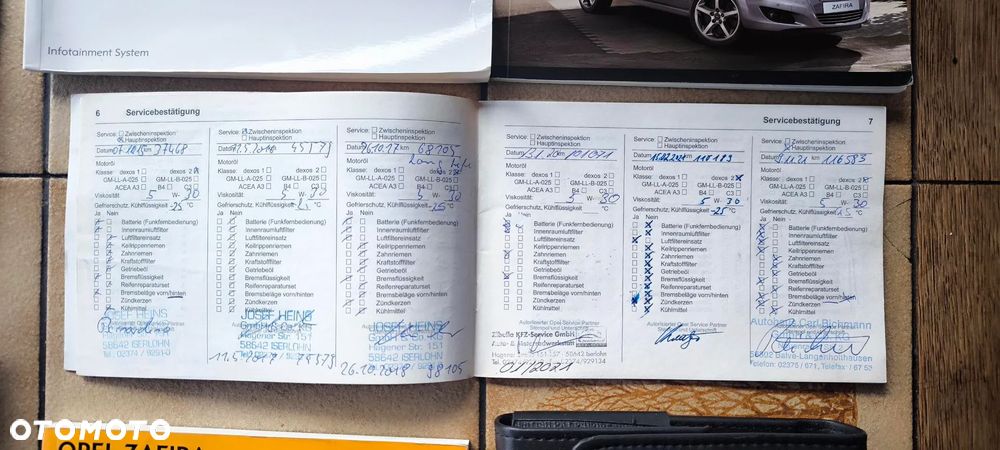 Infotainment System
ZAFIRA
6 Servicebestätigung
Service: Zwischeninspektion
Hauptinspektion
Datum 07.10.15 km 37468
Motoröl
Klasse: dexos 1 dexos 2
GM-LL-A-025 GM-LL-B-025
ACEA A3 B4 C3
Viskosität: 5 W- 30
Gefrierschutz, Kühlflüssigkeit -25 °C
Ja Nein
Batterie (Funkfernbedienung)
Innenraumluftfilter
Luftfiltereinsatz
Keilrippenriemen
Zahnriemen
Kraftstofffilter
Getriebeöl
Bremsflüssigkeit
Reifenreparaturset
Bremsbeläge vorn/hinten
Zündkerzen
Kühlmittel
Autorisierter Opel Service Partner
58642 ISERLOHN
Service: Zwischeninspektion
Hauptinspektion
Datum
Motoröl
Klasse: dexos 1 dexos 2
GM-LL-A-025 GM-LL-B-025
ACEA A3 B4 C3
Viskosität: 5 W- 30
Gefrierschutz, Kühlflüssigkeit °C
Ja Nein
Batterie (Funkfernbedienung)
Innenraumluftfilter
Luftfiltereinsatz
Keilrippenriemen
Zahnriemen
Kraftstofffilter
Getriebeöl
Bremsflüssigkeit
Reifenreparaturset
Bremsbeläge vorn/hinten
Zündkerzen
Kühlmittel
JOSEF HEINS
GmbH & Co. KG
Hagener Str. 151
58642 ISERLOHN
Service: Zwischeninspektion
Hauptinspektion
Datum 26.10.17 km 68705
Long life
Motoröl
Klasse: dexos 1 dexos 2
GM-LL-A-025 GM-LL-B-025
ACEA A3 B4 C3
Viskosität: 5 W- 30
Gefrierschutz, Kühlflüssigkeit -25 °C
Ja Nein
Batterie (Funkfernbedienung)
Innenraumluftfilter
Luftfiltereinsatz
Keilrippenriemen
Zahnriemen
Kraftstofffilter
Getriebeöl
Bremsflüssigkeit
Reifenreparaturset
Bremsbeläge vorn/hinten
Zündkerzen
Kühlmittel
JOSEF HEINS
GmbH & Co. KG
Hagener Str. 151
58642 ISERLOHN
26.10.2018 98105
Servicebestätigung 7
Service: Zwischeninspektion
Hauptinspektion
Datum km 101071
Motoröl
Klasse: dexos 1 dexos 2
GM-LL-A-025 GM-LL-B-025
ACEA A3 B4 C3
Viskosität: 5 W- 30
Gefrierschutz, Kühlflüssigkeit °C
Ja Nein
Batterie (Funkfernbedienung)
Innenraumluftfilter
Luftfiltereinsatz
Keilrippenriemen
Zahnriemen
Kraftstofffilter
Getriebeöl
Bremsflüssigkeit
Reifenreparaturset
Bremsbeläge vorn/hinten
Zündkerzen
Kühlmittel
Autorisierter Opel Service Partner
KFZ-Service GmbH
01/2021
Service: Zwischeninspektion
Hauptinspektion
Datum 16.02.2021 km 110189
Motoröl
Klasse: dexos 1 dexos 2
GM-LL-A-025 GM-LL-B-025
ACEA A3 B4 C3
Viskosität: 5 W- 30
Gefrierschutz, Kühlflüssigkeit -25 °C
Ja Nein
Batterie (Funkfernbedienung)
Innenraumluftfilter
Luftfiltereinsatz
Keilrippenriemen
Zahnriemen
Kraftstofffilter
Getriebeöl
Bremsflüssigkeit
Reifenreparaturset
Bremsbeläge vorn/hinten
Zündkerzen
Kühlmittel
Autorisierter Opel Service Partner
Service: Zwischeninspektion
Hauptinspektion
Datum km 116583
Motoröl
Klasse: dexos 1 dexos 2
GM-LL-A-025 GM-LL-B-025
ACEA A3 B4 C3
Viskosität: 5 W- 30
Gefrierschutz, Kühlflüssigkeit °C
Ja Nein
Batterie (Funkfernbedienung)
Innenraumluftfilter
Luftfiltereinsatz
Keilrippenriemen
Zahnriemen
Kraftstofffilter
Getriebeöl
Bremsflüssigkeit
Reifenreparaturset
Bremsbeläge vorn/hinten
Zündkerzen
Kühlmittel
58802 Balve-Langenholthausen
Telefon: 02375 / 071, Telefax: / 67 53
OTOMOTO
OPEL ZAFIRA